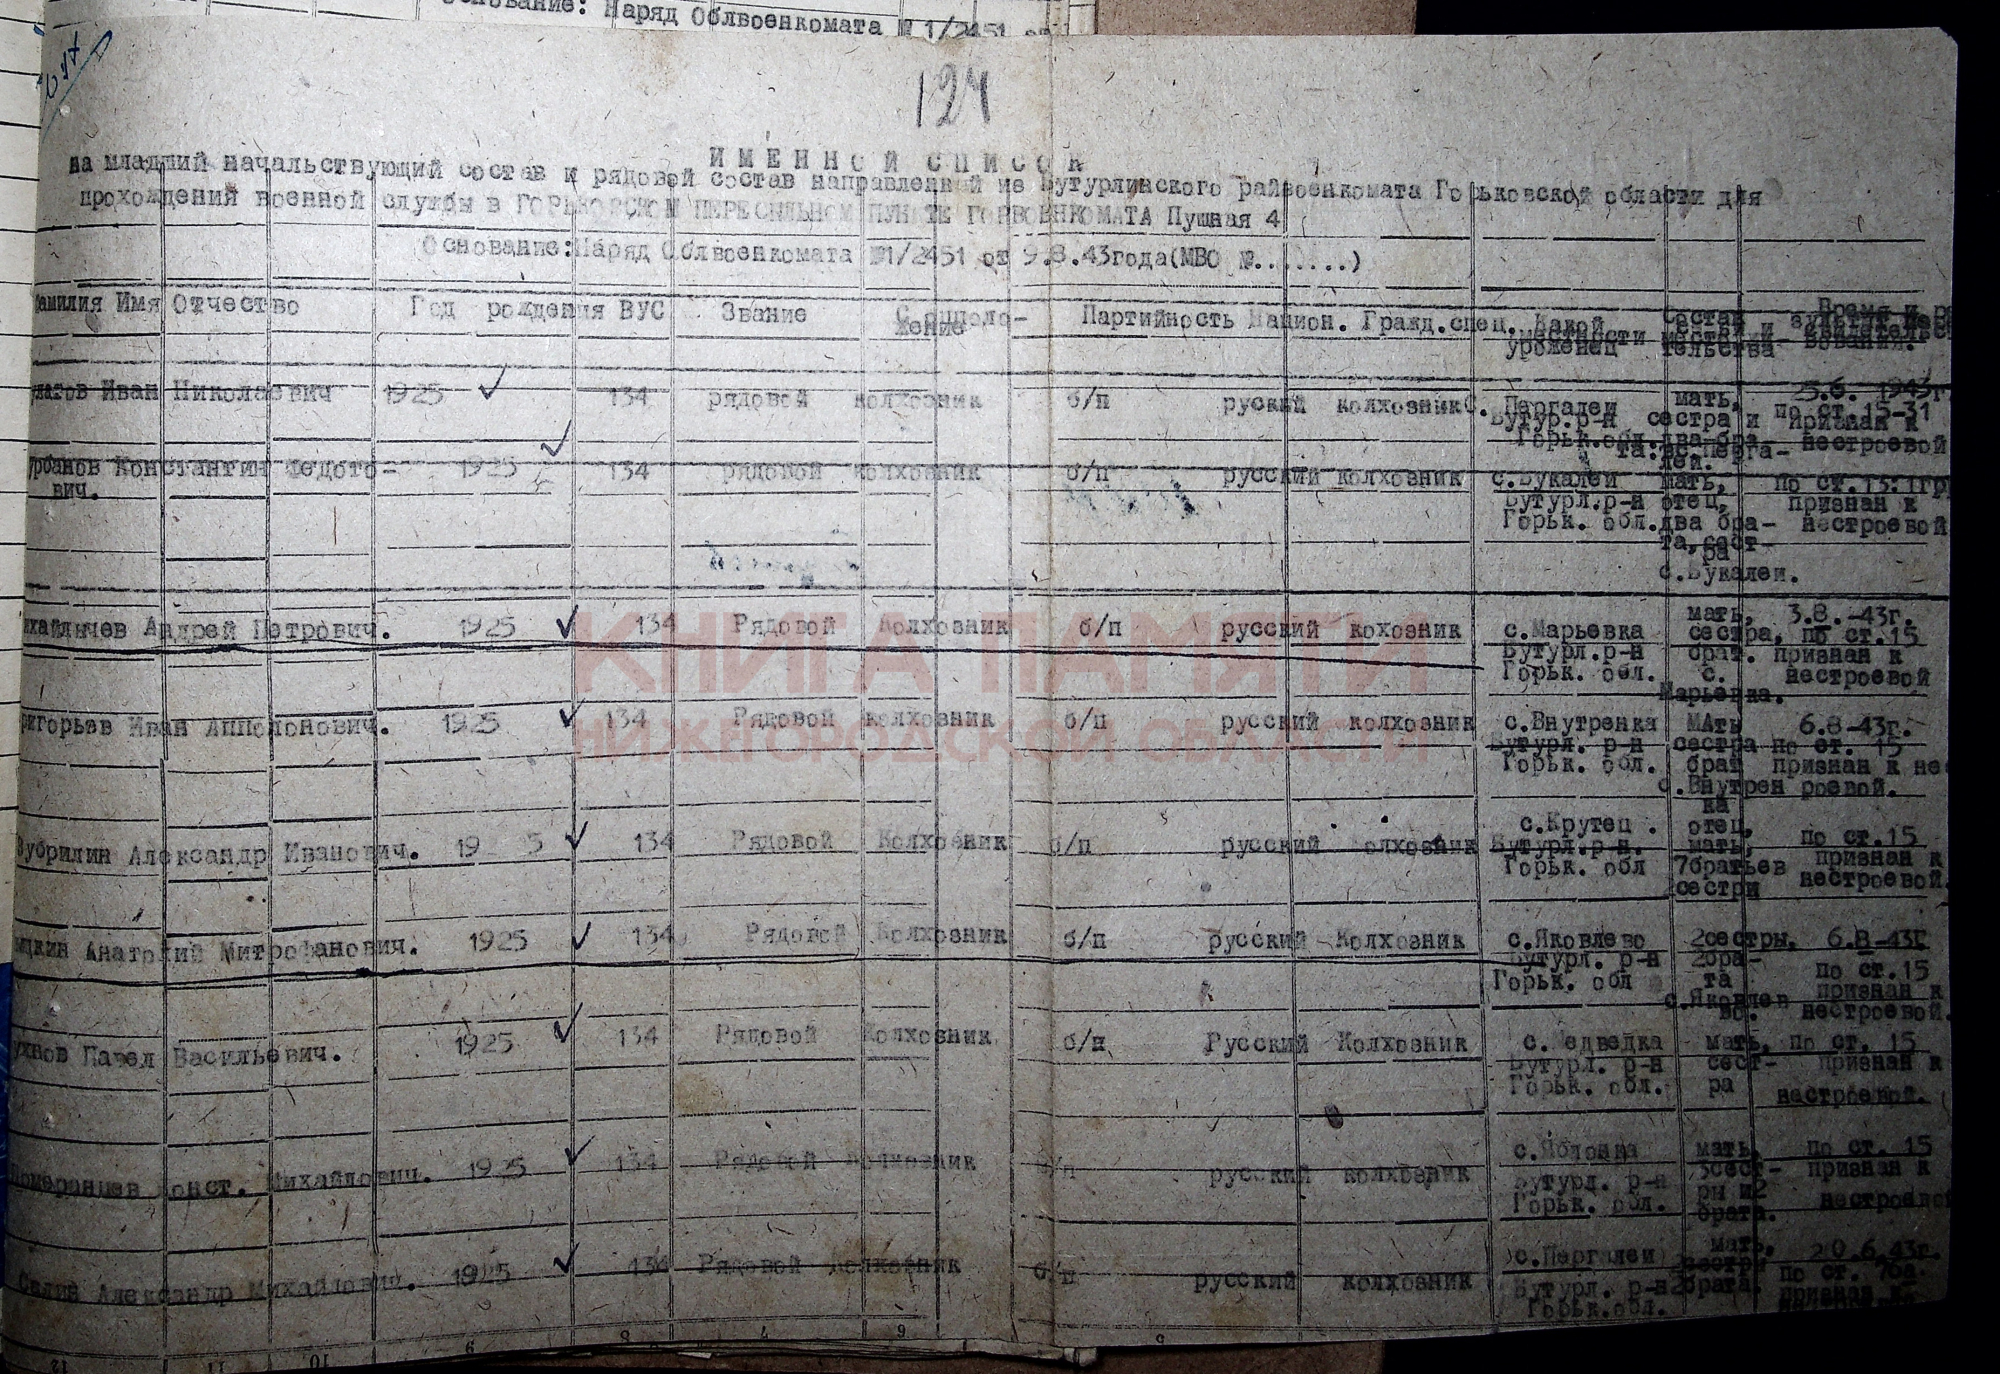 Наряд Облвоенкомата № 1/2451 от
124
ИМЕННОЙ СПИСОК
на младший начальствующий состав и рядовой состав направленный из Бутурлинского райвоенкомата Горьковской области для
прохождений военной службы в ГОРЬКОВСКОМ ПЕРЕСЫЛЬНОМ ПУНКТЕ ГОРВОЕНКОМАТА Пушная 4
Основание:Наряд Облвоенкомата №1/2451 от 9.8.43года(МВО №.......)
Фамилия Имя Отчество Год рождения ВУС Звание С.ополо- Партийность Национ. Гражд.спец. Какой Состав Время и
жение местности семьи и
уроженец тельства вования.
Иван Николаевич 1925 134 рядовой колхозник б/п руский колхозник С. Пергалеи мать, 5.6. 1943г
Бутур.р-н сестра и по ст.15-31
Горьк.обл.два бра- признан к
та:вс.Перга- нестроевой
леи.
Константин Федото- 1925 134 рядовой колхозник б/п русский колхозник с.Букалеи мать, по ст.15.1гр
вич. Бутурл.р-н отец, признан к
Горьк. обл.два бра- нестроевой
та,сест-
ра
с.Букалеи.
Андрей Петрович. 1925 134 Рядовой Колхозник б/п русский кохозник с.Марьевка мать, 3.8.-43г.
Бутурл.р-н сестра, по ст.15
Горьк. обл. брат. признан к
с. нестроевой
Марьевка.
КНИГА ПАМЯТИ
НИЖЕГОРОДСКОЙ ОБЛАСТИ
Иван Апполонович. 1925 134 Рядовой колхозник б/п русский колхозник с.Внутренка МАть 6.8-43г.
Бутурл. р-н сестра по ст. 15
Горьк. обл. брат признан к нес
с.Внутрен роевой.
ка
Зубрилин Александр Иванович. 19 5 134 Рядовой Колхозник б/п русский олхозник с.Крутец . отец,
Бутурл.р-н. мать, по ст.15
Горьк. обл 7братьев признан к
сестри нестроевой.
Анатолий Митрофанович. 1925 134 Рядовой Колхозник б/п русский Колхозник с.Яковлево 2сестры, 6.8-43Г
Бутурл. р-н 2бра- по ст.15
Горьк. обл та признан к
с.Яковлев нестроевой.
во.
Павел Васильевич. 1925 134 Рядовой Колхозник б/п Русский Колхозник с. едведка мать, по ст. 15
Бутурл. р-н сест- признан к
Горьк. обл. ра нестроевой.
Померанцев Конст. Михайлович. 1925 134 Рядовой колхозник б/п русский колхозник с.Яблонка мать, по ст. 15
Бутурл. р-н 3сест- признан к
Горьк. обл. ры и2 нестроевой
брата.
Селин Александр Михайлович. 1925 134 Рядовой колхозник б/п русский колхозник с.Пергалеи мать, 20.6.43г.
Бутурл. р-н 2брата. по ст. 76а.
Горьк.обл. признан к
12 11 10 9 8 4 9